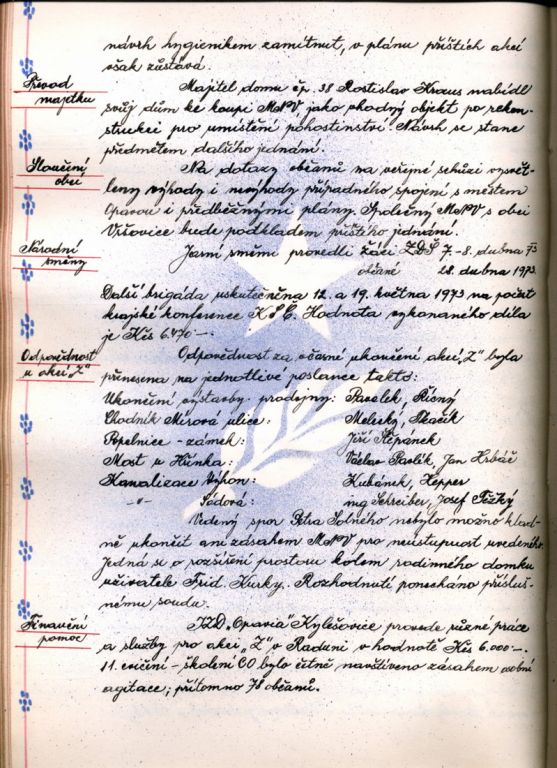 návrh hygienikem zamítnut, v plánu příštích akcí
však zůstává.
Převod
majetku
Majitel domu čp. 38 Rostislav Kraus nabídl
svůj dům ke koupi MNV jako vhodný objekt po rekon-
strukci pro umístění pohostinství. Návrh se stane
předmětem dalšího jednání.
Sloučení
obcí
Na dotazy občanů na veřejné schůzi vysvět-
leny výhody i nevýhody případného spojení s městem
Opavou i předběžnými plány. Společný MNV s obcí
Vršovice bude podkladem příštího jednání.
Národní
směny
Jarní směni provedli žáci ZDŠ 7.-8. dubna 73
občané 28. dubna 1973.
Další brigáda uskutečněna 12. a 19. května 1973 na počest
krajské konference KSČ. Hodnota vykonaného díla
je Kčs 6.470-.
Odpovědnost
u akcí "Z"
Odpovědnost za včasné ukončení akcí "Z" byla
přenesena na jednotlivé poslance takto:
Ukončení výstavby prodejny: Pavelek, Říčný
Chodník Mírová ulice: Melecký, Tkačík
Popelnice - zámek: Jiří Štěpánek
Most u Hřinka: Václav Pavlík, Jan Hrbáč
Kanalizace Výhon: Kubánek, Hepper
-"- Sádová: ing Schreiber, Josef Těžký
Vedený spor Petra Solného nebylo možno kladn
ně ukončit ani zásahem MNV pro neústupnost uvedeného.
Jedná se o rozšíření prostoru kolem rodinného domku
uživatele Frid. Kurky. Rozhodnutí ponecháno přísluš-
nému soudu.
Finanční
pomoc
JZD "Opavia" Kylešovice provede různé práce
a služby pro akci "Z" v Raduni v hodnotě Kčs 6.000-.
11. cvičení - školení CO bylo četně navštíveno zásahem osobní
agitace; přítomno 78 občanů.